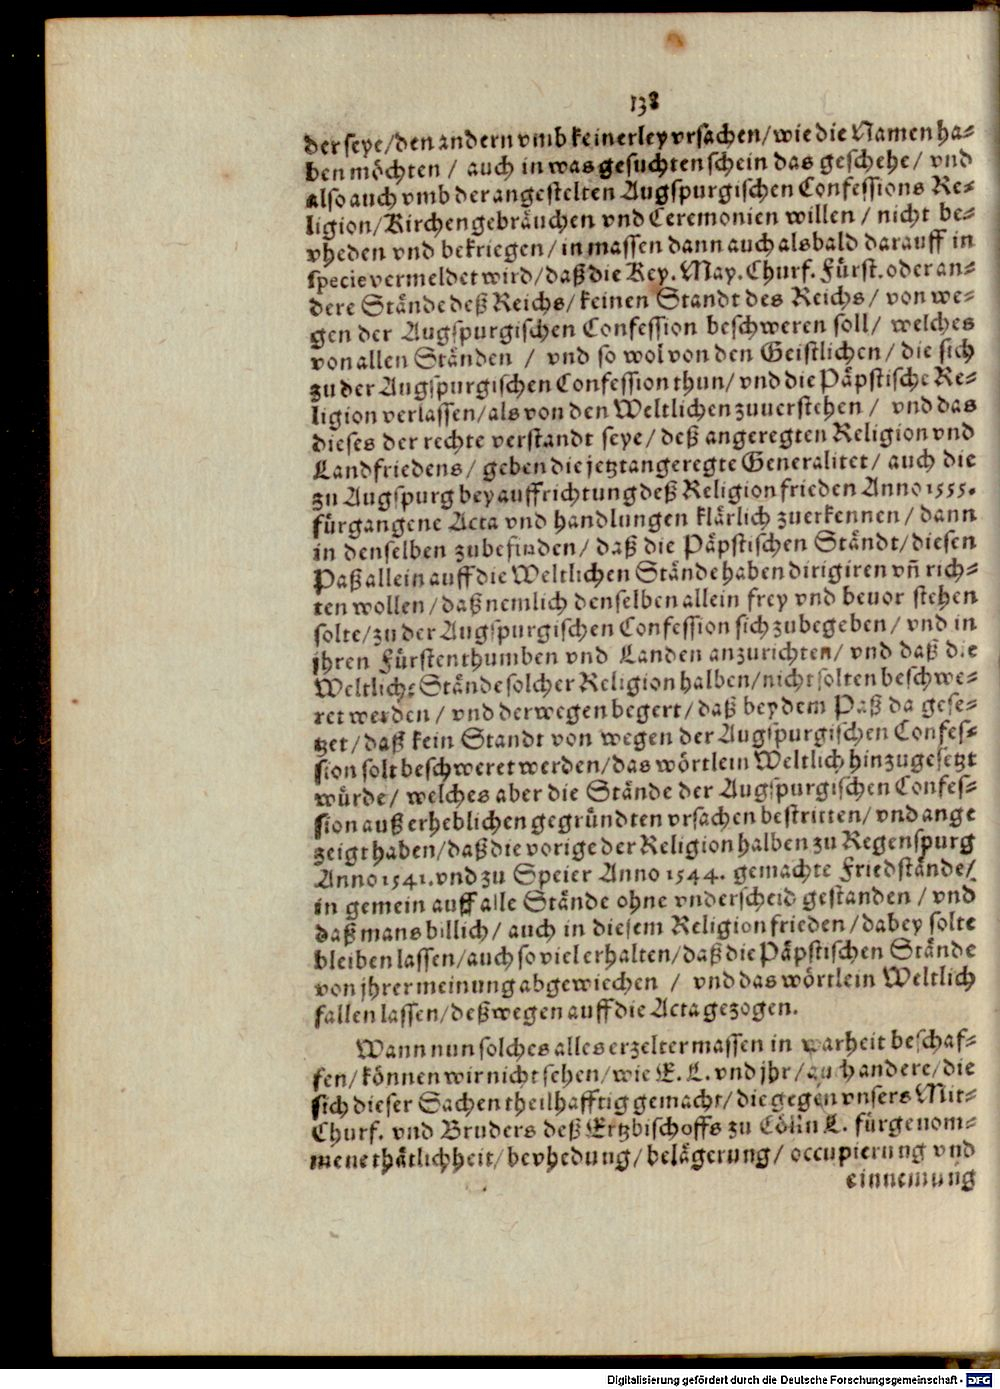 138
der seye/den andern vmb keinerley vrsachen/wie die Namen ha⸗
ben möchten / auch in was gesuchten schein das geschehe/ vnd
also auch vmb der angestelten Augspurgischen Confessions Re⸗
ligion/Kirchengebräuchen vnd Ceremonien willen / nicht be⸗
vheden vnd bekriegen/in massen dann auch alsbald darauff in
specie vermeldet wird/daß die Key. May. Churf. Fürst. oder an⸗
dere Stände deß Reichs/ keinen Standt des Reichs/ von we⸗
gen der Augspurgischen Confession beschweren soll/ welches
von allen Ständen / vnd so wol von den Geistlichen/ die sich
zu der Augspurgischen Confession thun/ vnd die Päpstische Re⸗
ligion verlassen/als von den Weltlichen zuuerstehen / vnd das
dieses der rechte verstandt seye/ deß angeregten Religion vnd
Landfriedens/ geben die jetztangeregte Generalitet/ auch die
zu Augspurg bey auffrichtung deß Religion frieden Anno 1555.
fürgangene Acta vnd handlungen klärlich zuerkennen/ dann
in denselben zubefinden/ daß die Päpstischen Ständt/diesen
Paß allein auff die Weltlichen Stände haben dirigiren vñ rich⸗
ten wollen/daß nemlich denselben allein frey vnd beuor stehen
solte/zu der Augspurgischen Confession sich zubegeben/ vnd in
jhren Fürstenthumben vnd Landen anzurichten/ vnd daß die
Weltliche Stände solcher Religion halben/nicht solten beschwe⸗
ret werden / vnd derwegen begert/ daß bey dem Paß da gese⸗
tzet/daß kein Standt von wegen der Augspurgischen Confes⸗
sion solt beschweret werden/das wörtlein Weltlich hinzugesetzt
würde/ welches aber die Stände der Augspurgischen Confes⸗
sion auß erheblichen gegründten vrsachen bestritten/ vnd ange
zeigt haben/daß die vorige der Religion halben zu Regenspurg
Anno 1541. vnd zu Speier Anno 1544. gemachte Friedstände/
in gemein auff alle Stände ohne vnderscheid gestanden / vnd
daß mans billich/ auch in diesem Religion frieden/dabey solte
bleiben lassen/auch so viel erhalten/daß die Päpstischen Stände
von jhrer meinung abgewiechen / vnd das wörtlein Weltlich
fallen lassen/deßwegen auff die Acta gezogen.
Wann nun solches alles erzelter massen in warheit beschaf⸗
fen/können wir nicht sehen/wie E. L. vnd jhr/auch andere/die
sich dieser Sachen theilhafftig gemacht/die gegen vnsers Mit⸗
Churf. vnd Bruders deß Ertzbischoffs zu Cölln L. fürgenom⸗
mene thätlichheit/bevhedung/belägerung/ occupierung vnd
einnemung
Digitalisierung gefördert durch die Deutsche Forschungsgemeinschaft - DFG